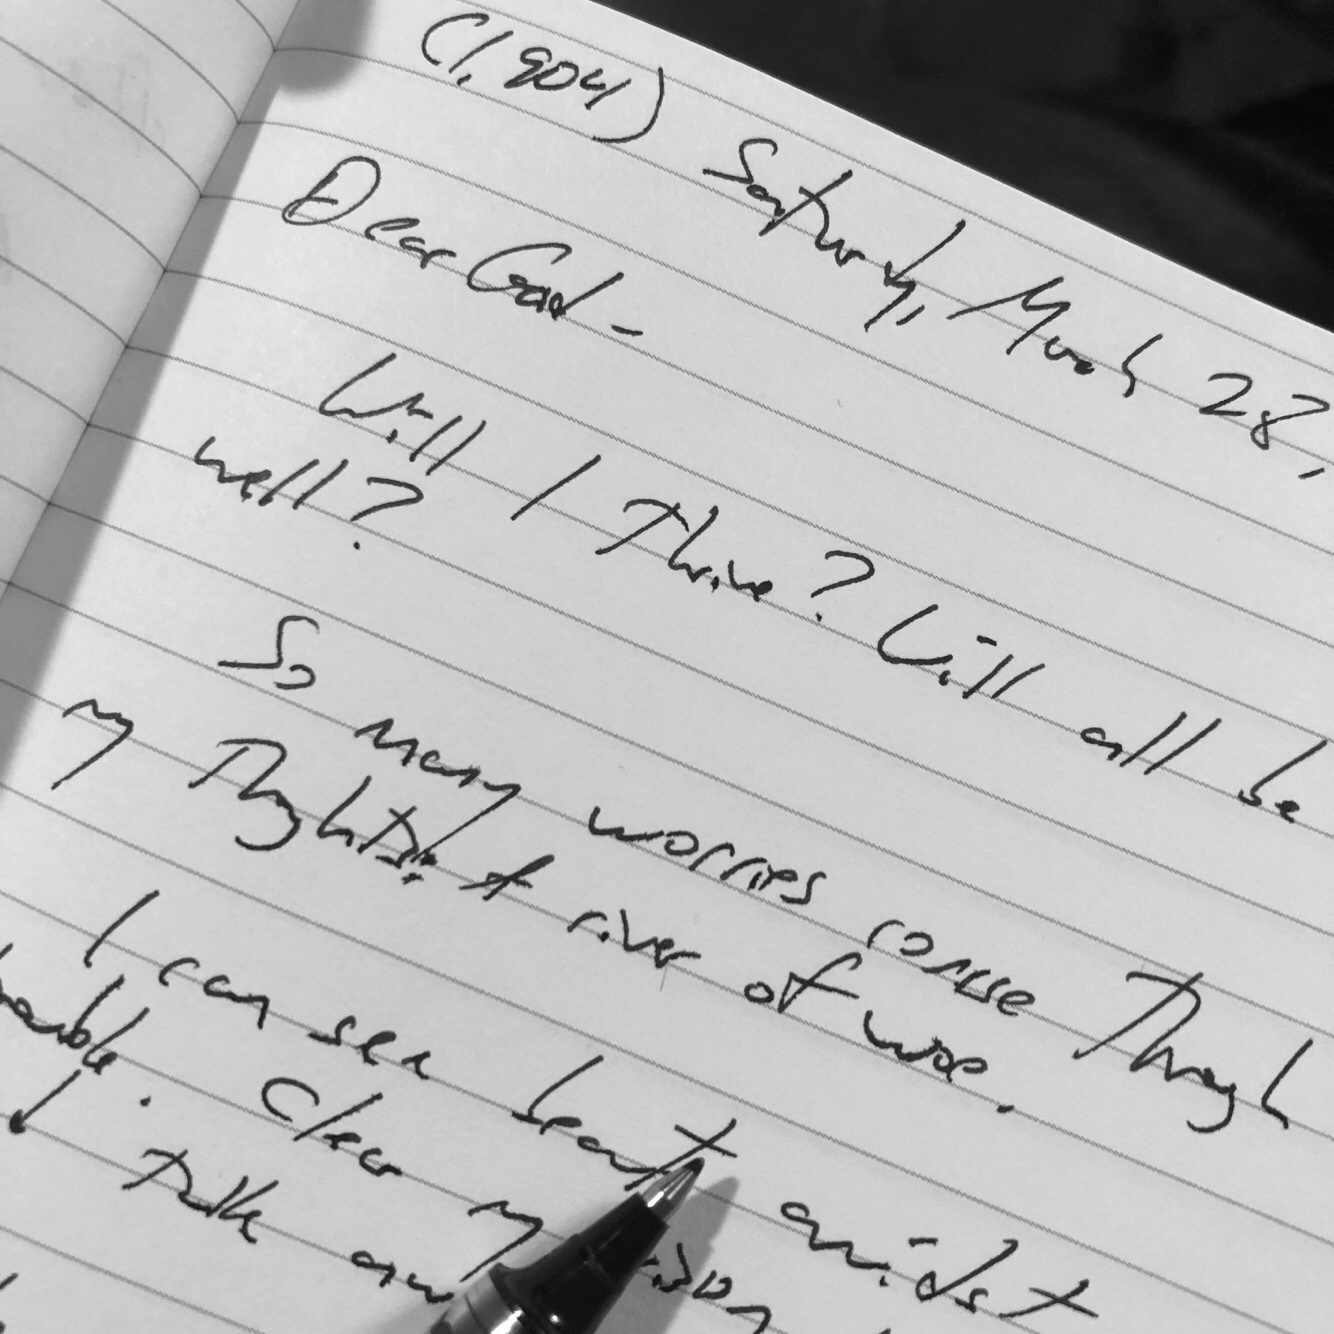 (1,904) Saturday, March 28,
Dear God -
Will I Thrive? Will all be
well?
So many worries course Through
my Thoughts: A river of woe.
I can see beauty amidst
Clear my vision
Talk